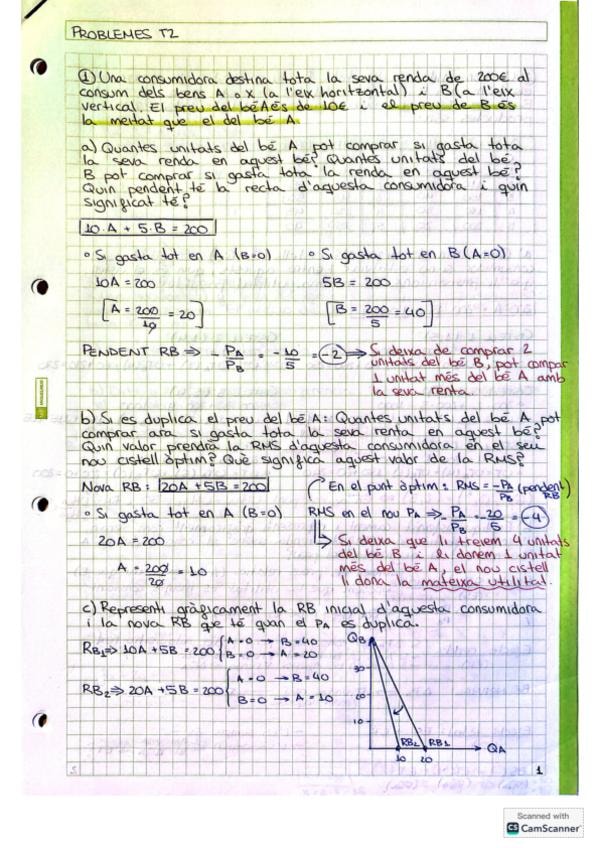 PROBLEMES T2
① Una consumidora destina tota la seva renda de 200€ al
consum dels bens A o X (a l'eix horitzontal) i B (a l'eix
vertical. El preu del bé A és de 10€ i el preu de B és
la meitat que el del bé A.
a) Quantes unitats del bé A pot comprar si gasta tota
la seva renda en aquest bé? Quantes unitats del bé
B pot comprar si gasta tota la renda en aquest bé?
Quin pendent té la recta d'aquesta consumidora i quin
significat té?
10·A + 5·B = 200
° Si gasta tot en A (B=0) ° Si gasta tot en B (A=0)
10A = 200 5B = 200
[A = 200/10 = 20] [B = 200/5 = 40]
PENDENT RB ⇒ -PA/PB = -10/5 = -2 → Si deixa de comprar 2
unitats del bé B, pot compar
1 unitat més del bé A amb
la seva renta.
b) Si es duplica el preu del bé A: Quantes unitats del bé A pot
comprar ara si gasta tota la seva renta en aquest bé?
Quin valor prendrà la RMS d'aquesta consumidora en el seu
nou cistell òptim? Què significa aquest valor de la RMS?
Nova RB: 20A + 5B = 200 En el punt òptim: RMS = -PA/PB (pendent RB)
° Si gasta tot en A (B=0) RMS en el nou PA ⇒ -PA/PB = -20/5 = -4
20A = 200
A = 200/20 = 10
Si deixa que li treiem 4 unitats
del bé B i li donem 1 unitat
més del bé A, el nou cistell
li dona la mateixa utilitat.
c) Representi gràficament la RB inicial d'aquesta consumidora
i la nova RB que té quan el PA es duplica.
RB1 ⇒ 10A + 5B = 200 { A=0 → B=40
B=0 → A=20
RB2 ⇒ 20A + 5B = 200 { A=0 → B=40
B=0 → A=10
QB
30
20
10
RB2 RB1 QA
10 20
1
Scanned with
CS CamScanner